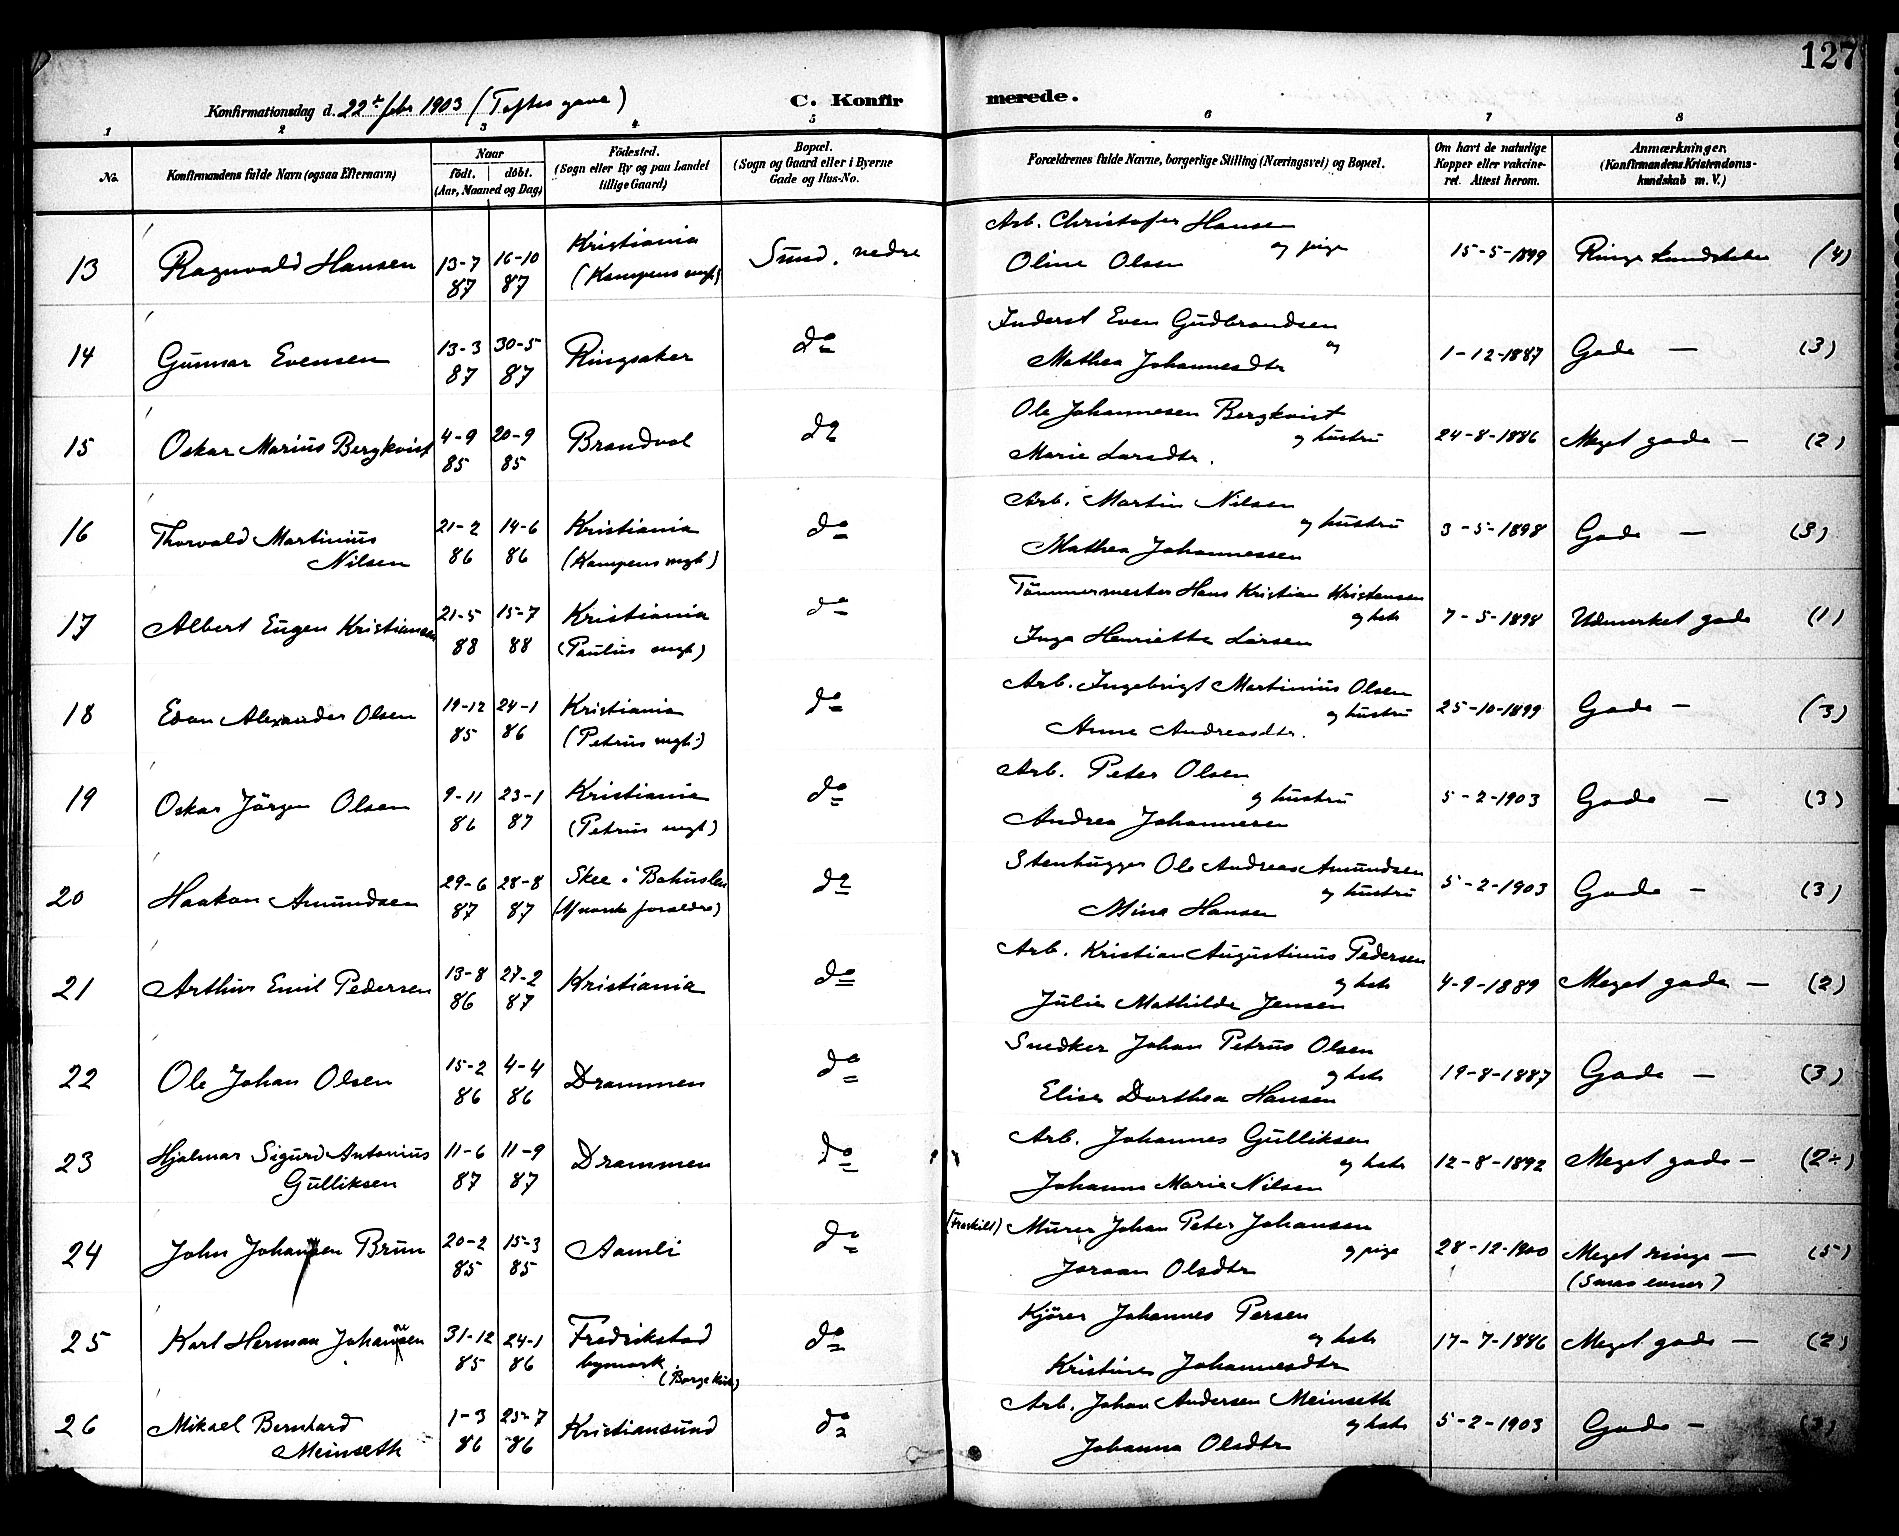 127
Konfirmationsdag d. 22de febr 1903 (Toftes gave) C. Konfirmerede.
1 2 3 4 5 6 7 8
No. Konfirmandens fulde Navn (ogsaa Efternavn) Naar födt. döbt. (Aar, Maaned og Dag) Födested. (Sogn eller By og paa Landet tillige Gaard) Bopæl. (Sogn og Gaard eller i Byerne Gade og Hus-No.) Forældrenes fulde Navne, borgerlige Stilling (Næringsvei) og Bopæl. Om havt de naturlige Kopper eller vakcineret. Attest herom. Anmærkninger. (Konfirmandens Kristendomskundskab m. V.)
13 Ragnvald Hansen 13-7 87 16-10 87 Kristiania (Kampens mgh) Sund, nedre Arb. Christofer Hansen og pige Oline Olsen 15-5-1899 Ringe kundskaber (4)
14 Gunnar Evensen 13-3 87 30-5 87 Ringsaker do Inderst Even Gudbrandsen og Mathea Johannesdtr 1-12-1887 Gode — (3)
15 Oskar Marius Bergkvist 4-9 85 20-9 85 Brandval do Ole Johannesen Bergkvist og hustru Marie Larsdtr. 24-8-1886 Meget gode — (2)
16 Thorvald Martinius Nilsen 21-2 86 14-6 86 Kristiania (Kampens mgh) do Arb. Martin Nilsen og hustru Mathea Johannessen 3-5-1898 Gode — (3)
17 Albert Eugen Kristiansen 21-5 88 15-7 88 Kristiania (Paulus mgh) do Tömmermester Hans Kristian Kristensen og hstr Inga Henriette Larsen 7-5-1898 Udmerket gode (1)
18 Evan Alexander Olsen 19-12 85 24-1 86 Kristiania (Petrus mgh) do Arb. Ingebrigt Martinius Olsen og hustru Anne Andreasdtr. 25-10-1899 Gode — (3)
19 Oskar Jörgen Olsen 9-11 86 23-1 87 Kristiania (Petrus mgh) do Arb. Peter Olsen og hustru Andrea Johannesen 5-2-1903 Gode — (3)
20 Haakon Amundsen 29-6 87 28-8 87 Skee i Bohuslen (Af norske forældre) do Stenhugger Ole Andreas Amundsen og hustru Mina Hansen 5-2-1903 Gode — (3)
21 Arthur Emil Pedersen 13-8 86 27-2 87 Kristiania do Arb. Kristian Augustinus Pedersen og hstr Julie Mathilde Jensen 4-9-1889 Meget gode — (2)
22 Ole Johan Olsen 15-2 86 4-4 86 Drammen do Snedker Johan Petrus Olsen og hstr Elise Dorthea Hansen 19-8-1887 Gode — (3)
23 Hjalmar Sigurd Antonius Gulliksen 11-6 87 11-9 87 Drammen do Arb. Johannes Gulliksen og hstr Johanne Marie Nilsen 12-8-1892 Meget gode — (2÷)
24 John Johansen Brun 20-2 85 15-3 85 Aamli do (Fraskilt) Murer Johan Peter Johansen og pige Joraan Olsdtr 28-12-1900 Meget ringe — (Smaa evner) (5)
25 Karl Herman Johansen 31-12 85 24-1 86 Fredrikstad bymark (Borge kirk) do Kjörer Johannes Persen og hstr Kristine Johannesdtr 17-7-1886 Meget gode — (2)
26 Mikael Bernhard Meinseth 1-3 86 25-7 86 Kristiansund do Arb. Johan Andersen Meinseth og hstr Johanna Olsdtr 5-2-1903 Gode — (3)